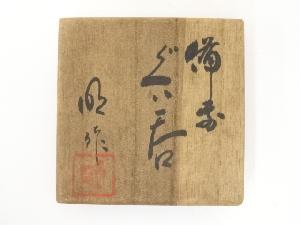 備前
ぐい呑
明作